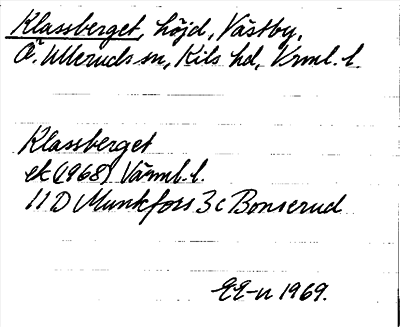 Klassberget, höjd, Västby,
Ö. Ulleruds sn, Kils hd, Vrml. l.
Klassberget
ek (1968) Värml. l.
11 D Munkfors 3 c Bonserud
EE-n 1969.